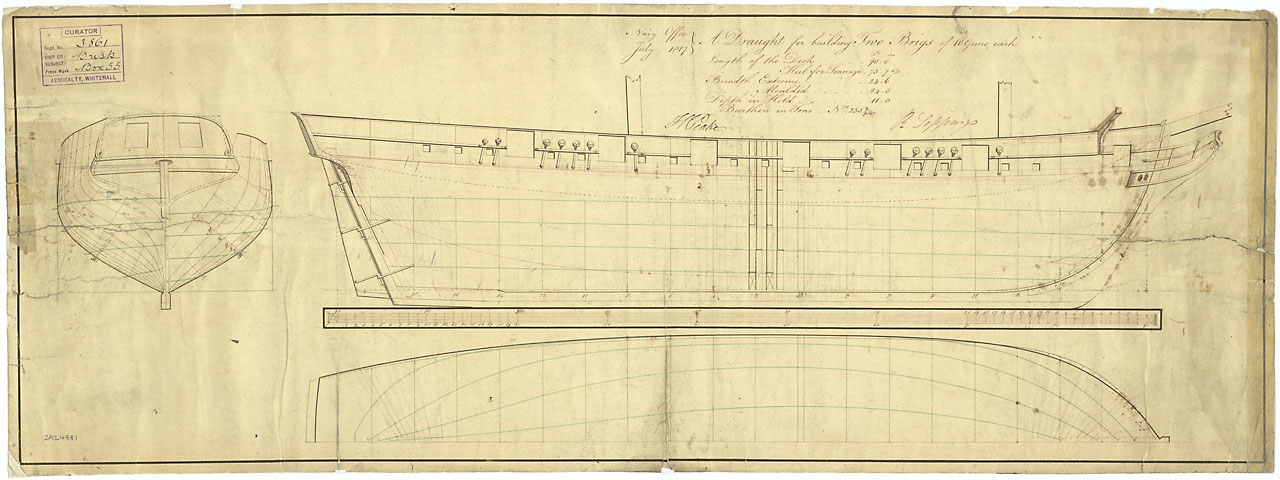 CURATOR
Regd. No. 3861
SHIP OR SUBJECT: Brisk
Press Mark Box 55
ADMIRALTY, WHITEHALL
Navy Office
July 1817
A Draught for building Two Brigs of 10 Guns each
Length of the Deck 90.0
Keel for Tonnage 73.7
Breadth Extreme 24.6
Moulded 24.0
Depth in Hold 11.0
Burthen in Tons No. 235
H Peake
R Seppings